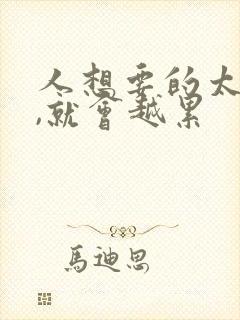 人想要的太
,就會越累
馬迪思